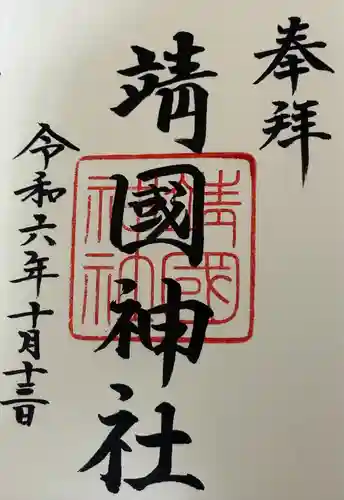 奉拝
靖國神社
令和六年十月十三日
靖國
神社